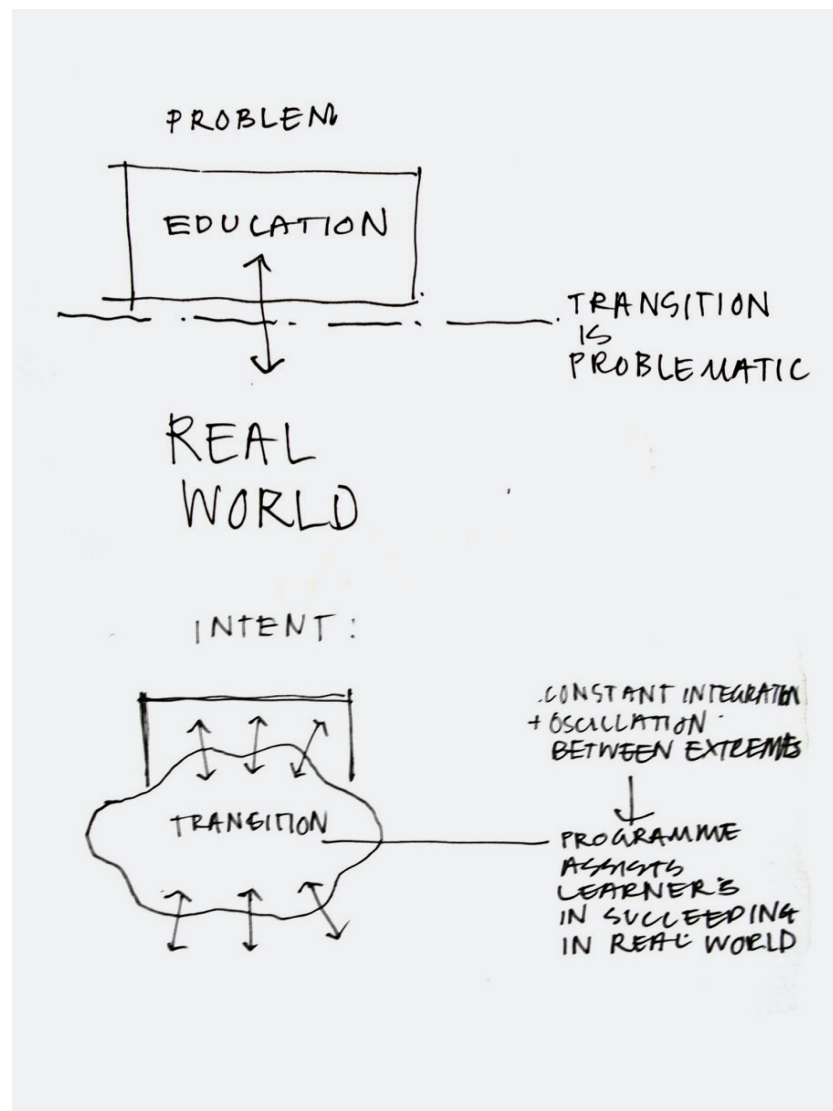 PROBLEM
EDUCATION
TRANSITION
IS
PROBLEMATIC
REAL
WORLD
INTENT:
.CONSTANT INTEGRATION
+ OSCILLATION
BETWEEN EXTREMES
TRANSITION
PROGRAMME
ASSISTS
LEARNER'S
IN SUCCEEDING
IN REAL WORLD